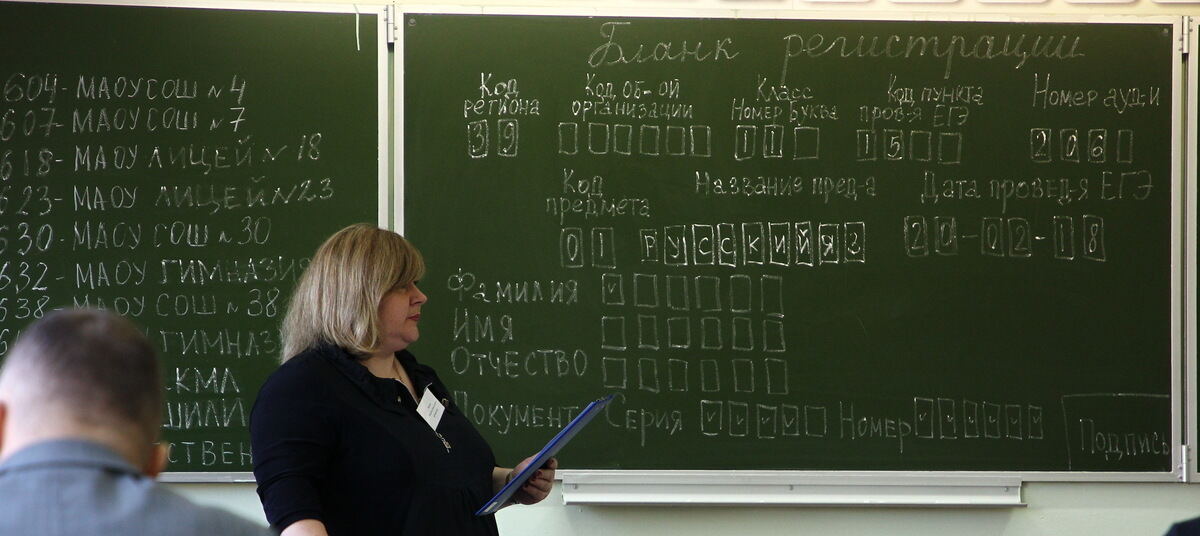 604- МАОУ СОШ №4
607- МАОУ СОШ №7
618- МАОУ ЛИЦЕЙ № 18
623- МАОУ ЛИЦЕЙ №23
630- МАОУ СОШ №30
632- МАОУ ГИМНАЗИЯ
638- МАОУ СОШ № 38
ГИМНАЗИ
СТВЕН
Бланк регистрации
Код региона
Код об-ой организации
Класс
Номер Буква
Код пункта пров-я ЕГЭ
Номер ауд-и
39
11
15
206
Код предмета
Название пред-а
Дата пров-д-я ЕГЭ
01
РУССКИЙ ЯЗ
20-02-18
Фамилия
Имя
Отчество
Документ Серия Номер
Подпись